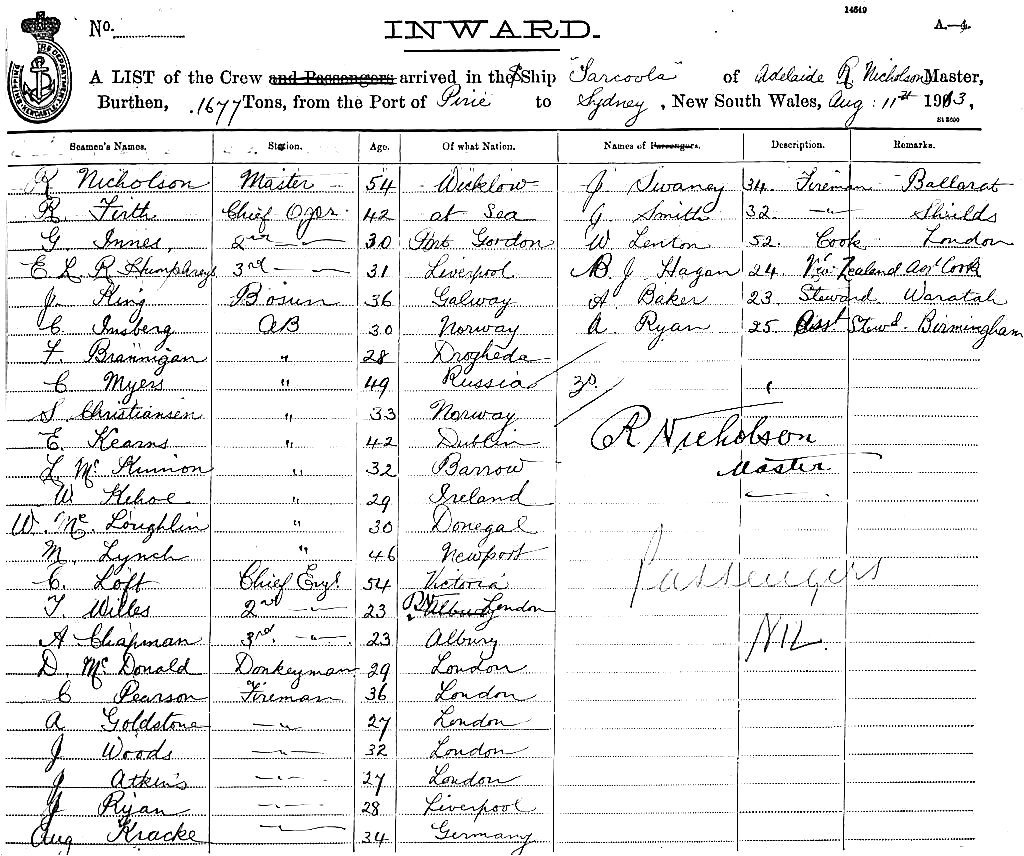 14519
No. INWARD. A—4
A LIST of the Crew and Passengers arrived in the Ship "Tarcoola" of Adelaide R Nicholson Master,
Burthen, 1677 Tons, from the Port of Pirie to Sydney, New South Wales, Aug: 11th 1913,
St 3600
Seamen's Names. Station. Age. Of what Nation. Names of Passengers. Description. Remarks.
R Nicholson Master 54 Wicklow J Swaney 34. Fireman Ballarat
R Firth Chief Ofcr. 42 at Sea J Smith 32. —"— Shields
G. Innes, 2nd —"— 30 Port Gordon W Lenton 52. Cook London
E. L. R Humphreys 3rd —"— 31 Liverpool B. J Hagan 24 New Zealand Asst Cook
J. King Bosun 36 Galway A Baker 23 Steward Waratah
C Insberg AB 30 Norway A. Ryan 25 Asst Stewd. Birmingham
F. Brannigan " 28 Drogheda
C Myers " 49 Russia 30.
S Christiansen " 33 Norway
E. Kearns " 42 Dublin R Nicholson
L McKinnon " 32 Barrow Master
W Kehoe " 29 Ireland
W. McLoughlin " 30 Donegal
M. Lynch " 46 Newport
C. Loft Chief Eng. 54 Victoria Passengers
T Willes 2nd —"— 23 RN Albury London
A Chapman 3rd. —"— 23 Albury NIL.
D. McDonald Donkeyman 29 London
C Pearson Fireman 36 London
A Goldstone —"— 27 London
J Woods —"— 32 London
J Atkins —"— 27 London
J Ryan —"— 28 Liverpool
Aug Kracke —"— 34 Germany